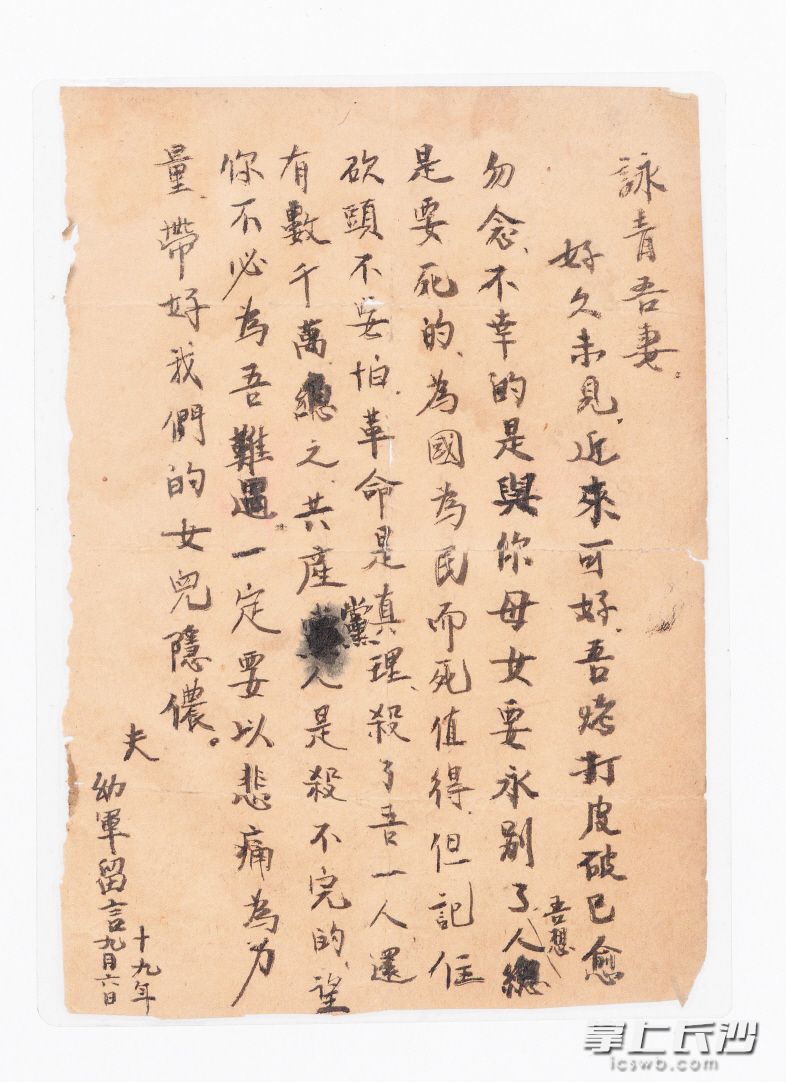 詠青吾妻.
好久未見,近來可好.吾烤打皮破已愈
勿念、不幸的是與你母女要永别了吾想人總
是要死的、為國為民而死值得、但記住
砍頭不要怕.革命是真理、殺了吾一人還
有數千萬總之共産黨人是殺不完的、望
你不必為吾難過一定要以悲痛為力
量、帶好我們的女兒隱儂。
夫
幼軍留言
十九年
九月六日
掌上长沙
icswb.com